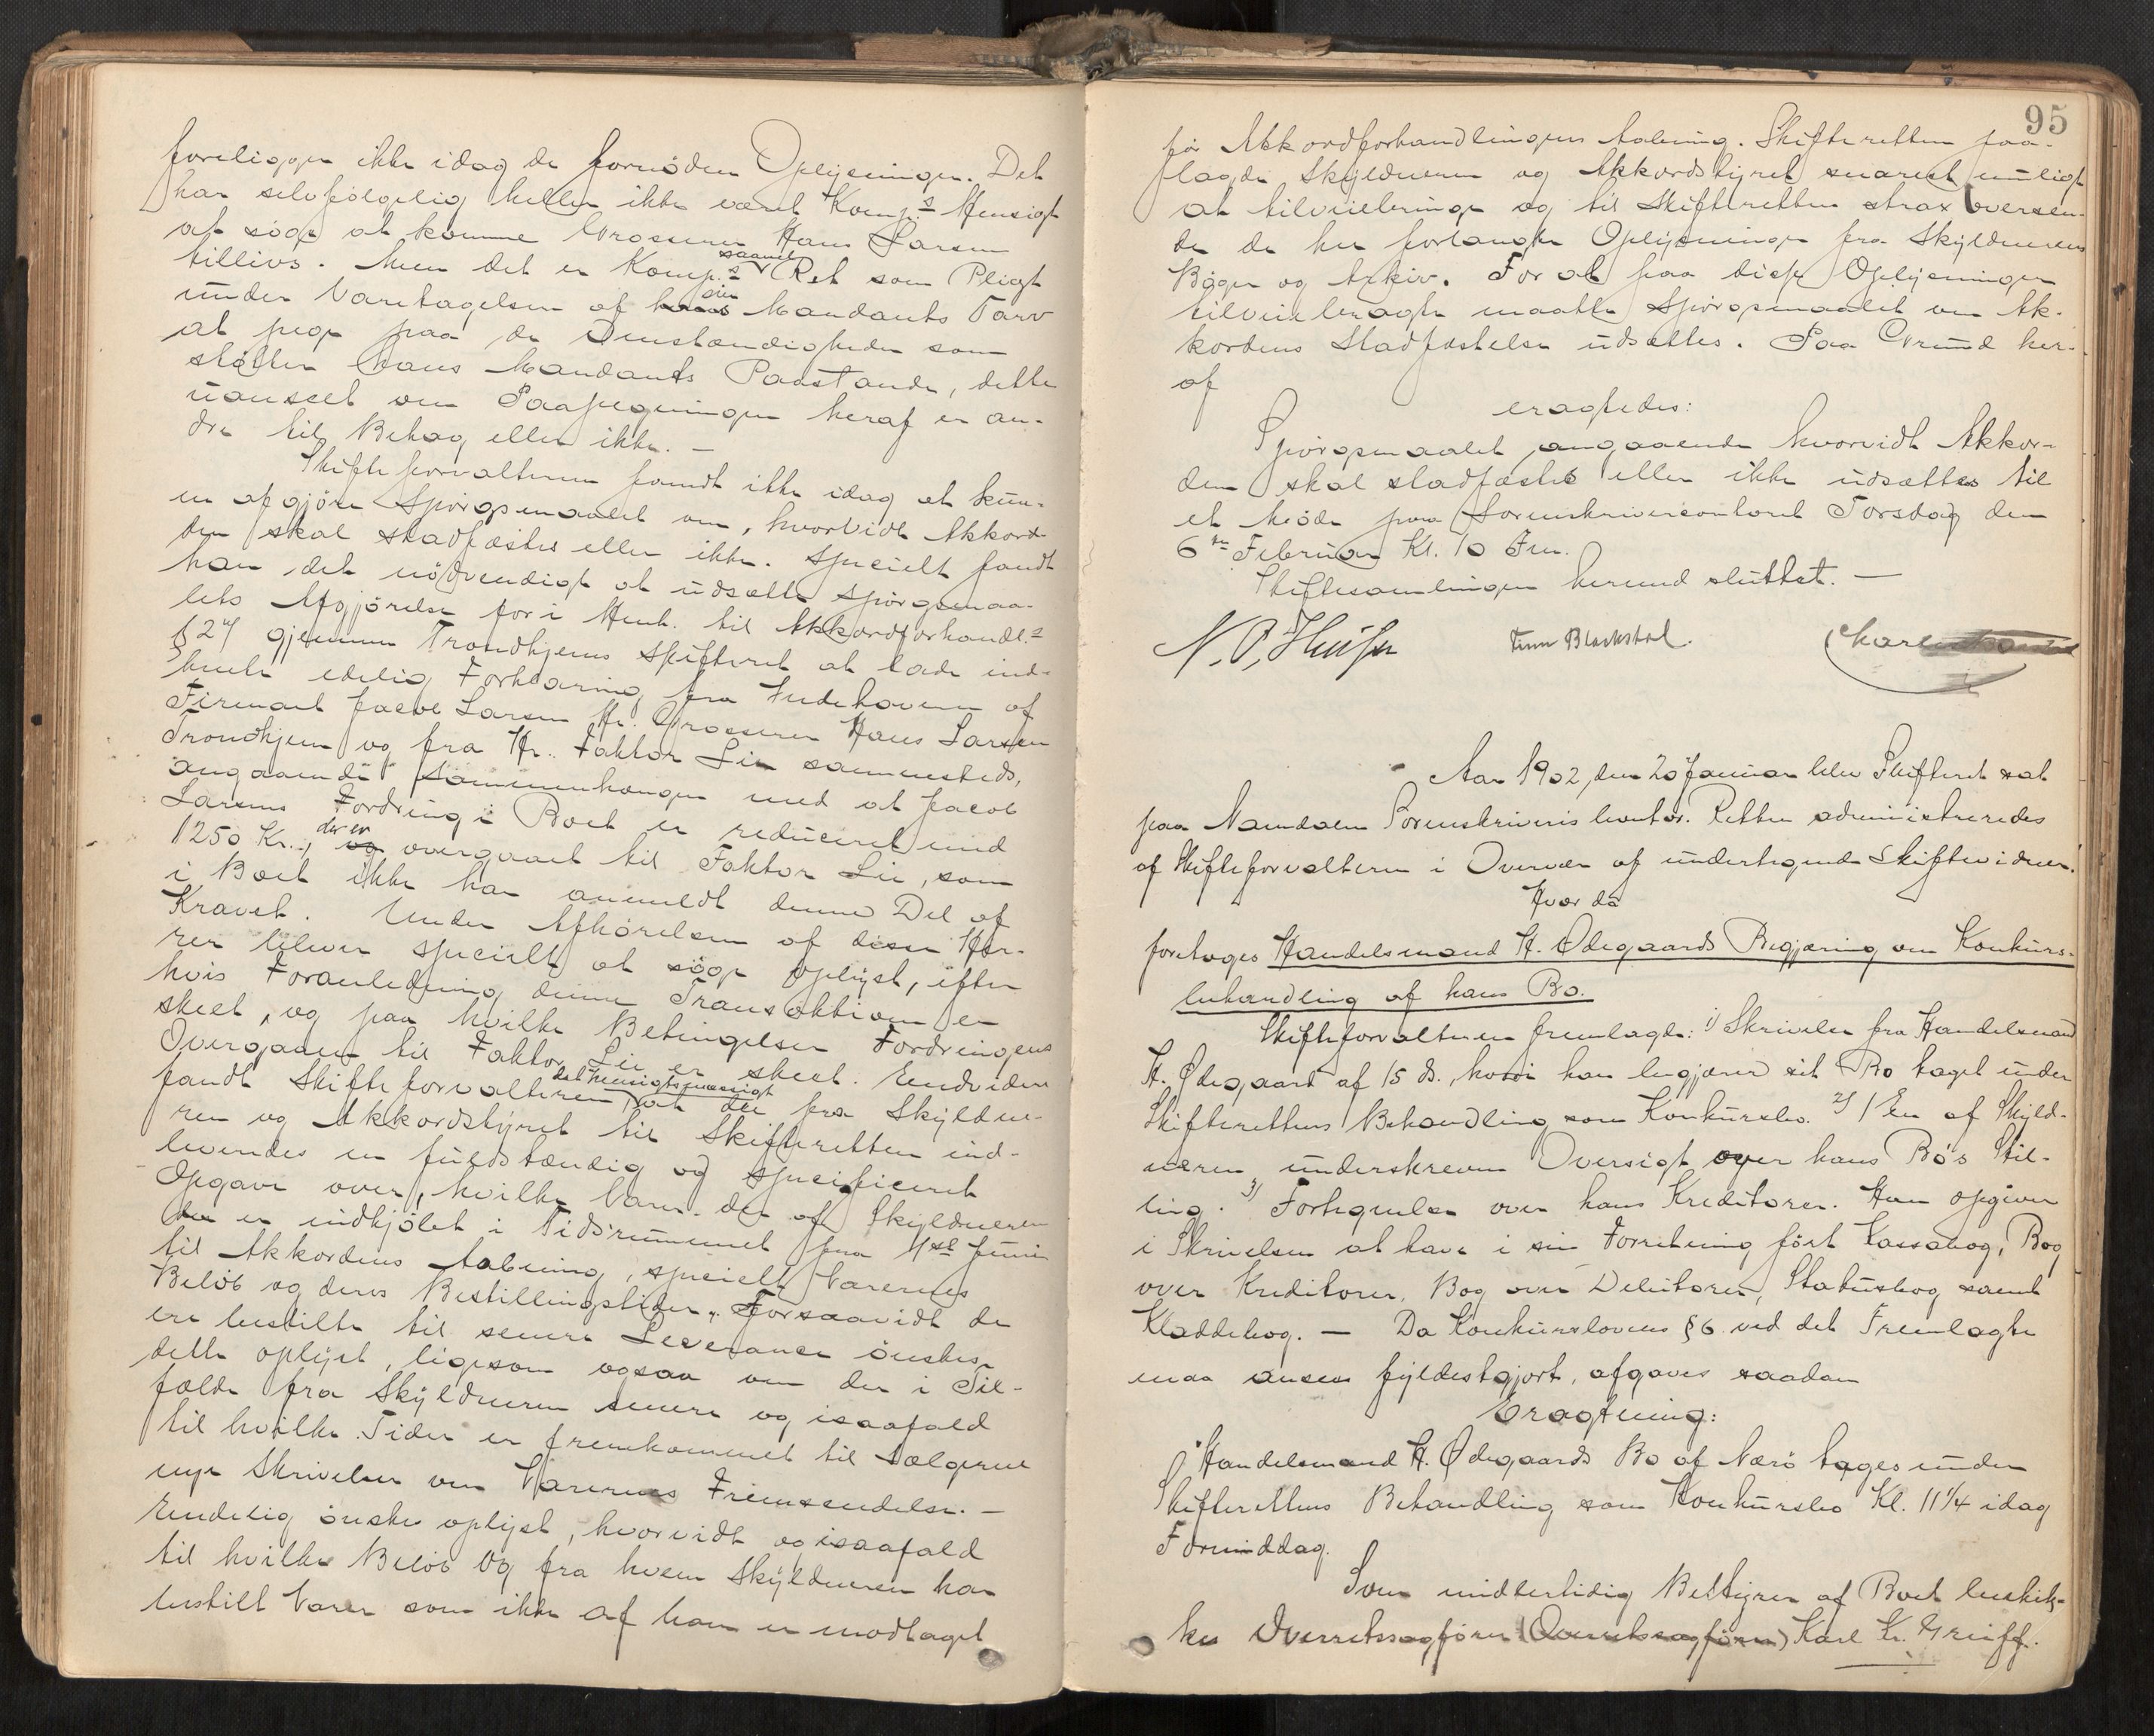 foreligger ikke idag de fornødne Oplysninger. Det
har selvfølgelig heller ikke været Komp.s Hensigt
at søge at komme Grosserer Hans Larsen
tillivs. Men det er Komp.s saavel Ret som Pligt
under Varetagelsen af hans sin Mandants Tarv
at pege paa de Omstændigheder som
støtter hans Mandants Paastande, dette
uanseet om Paapegningen heraf er an-
dre til Behag eller ikke. —
Skifteforvalteren fandt ikke idag at kun-
ne afgjøre Spørgsmaalet om, hvorvidt Akkor-
den skal stadfæstes eller ikke. Specielt fandt
han det nødvendigt at udsætte Spørgsmaa-
lets Afgjørelse for i Henh. til Akkordforhandl.s
§ 27 gjennem Trondhjems Skifteret at lade ind-
hente edelig Forklaring fra Indehaveren af
Firmaet Jacob Larsen Hr. Grosserer Hans Larsen
Trondhjem og fra Hr. Faktor Lie sammesteds,
angaaende Sammenhængen med at Jacob
Larsens Fordring i Boet er reduceret med
1250 Kr., og der er overgaaet til Faktor Lie, som
i Boet ikke har anmeldt denne Del af
Kravet. Under Afhørelsen af disse Her-
rer bliver specielt at søge oplyst, efter
hvis Foranledning denne Transaktion er
skeet, og paa hvilke Betingelser Fordringens
Overgaaen til Faktor Lie er skeet. Endvidere
fandt Skifteforvalteren det hensigtsmæssigt at der fra Skyldne-
ren og Akkordstyret til Skifteretten ind-
sendes en fuldstændig og specificeret
Opgave over, hvilke Varer der af Skyldneren
er indkjøbt i Tidsrummet fra 1ste Juni
til Akkordens Aabning, specielt Varernes
Beløb og deres Bestillingstider. Forsaavidt de
ere bestilte til senere Leverance ønskes
dette oplyst, ligesom ogsaa om der i Til-
fælde fra Skyldneren senere og isaafald
til hvilke Tider er fremkommet til Sælgerne
nye Skrivelser om Varernes Fremsendelse. —
Endelig ønskes oplyst, hvorvidt og isaafald
til hvilke Beløb og fra hvem Skyldneren har
bestilt Varer som ikke af ham er modtaget
95
før Akkordforhandlingens Aabning. Skifteretten paa-
lagde Skyldneren og Akkordstyret snarest muligt
at tilveiebringe og til Skifteretten strax oversen-
de de her forlangte Oplysninger fra Skyldnerens
Bøger og Arkiv. For at faa disse Oplysninger
tilveiebragte maatte Spørgsmaalet om Ak-
kordens Stadfæstelse udsættes. Paa Grund her-
af
eragtedes:
Spørgsmaalet angaaende hvorvidt Akkor-
den skal stadfæstes eller ikke udsættes til
et Møde paa Sorenskrivercontoret Torsdag den
6te Februar Kl. 10 Fm.
Skiftesamlingen hermed sluttet. —
Finn Blakstad.
Aar 1902, den 20 Januar blev Skifteret sat
paa Namdalens Sorenskriveris kontor. Retten administreredes
af Skifteforvalteren i Overvær af undertegnede Skiftevidner.
Hvor da
foretoges Handelsmand H. Ødegaards Begjæring om Konkurs-
behandling af hans Bo.
Skifteforvalteren fremlagde: 1) Skrivelse fra Handelsmand
H. Ødegaard af 15 ds., hvori han begjærer sit Bo taget under
Skifterettens Behandling som Konkursbo. 2) En af Skyld-
neren underskreven Oversigt over hans Bo's Stil-
ling. 3) Fortegnelse over hans Kreditorer. Han opgiver
i Skrivelsen at have i sin Forretning ført Kassabog, Bog
over Kreditorer, Bog over Debitorer, Statusbog samt
Kladdebog. — Da Konkurslovens § 6 ved det Fremlagte
maa ansees fyldestgjort, afgaves saadan
Eragtning:
Handelsmand H. Ødegaards Bo af Nærø tages under
Skifterettens Behandling som Konkursbo Kl. 11¼ idag
Formiddag.
Som midlertidig Bestyrer af Boet beskik-
kes Overretssagfører (Overretssagfører) Karl Kr. Greiff.